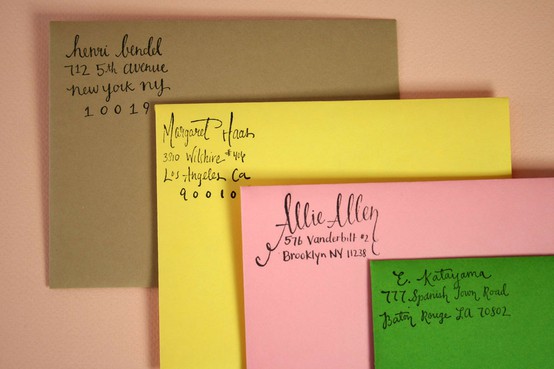 henri bendel
712 5th avenue
new york ny
10019
Margaret Haas
3910 Wilshire #414
Los Angeles Ca
90010
Allie Allen
576 Vanderbilt #2
Brooklyn NY 11238
E. Katayama
777 Spanish Town Road
Baton Rouge LA 70802